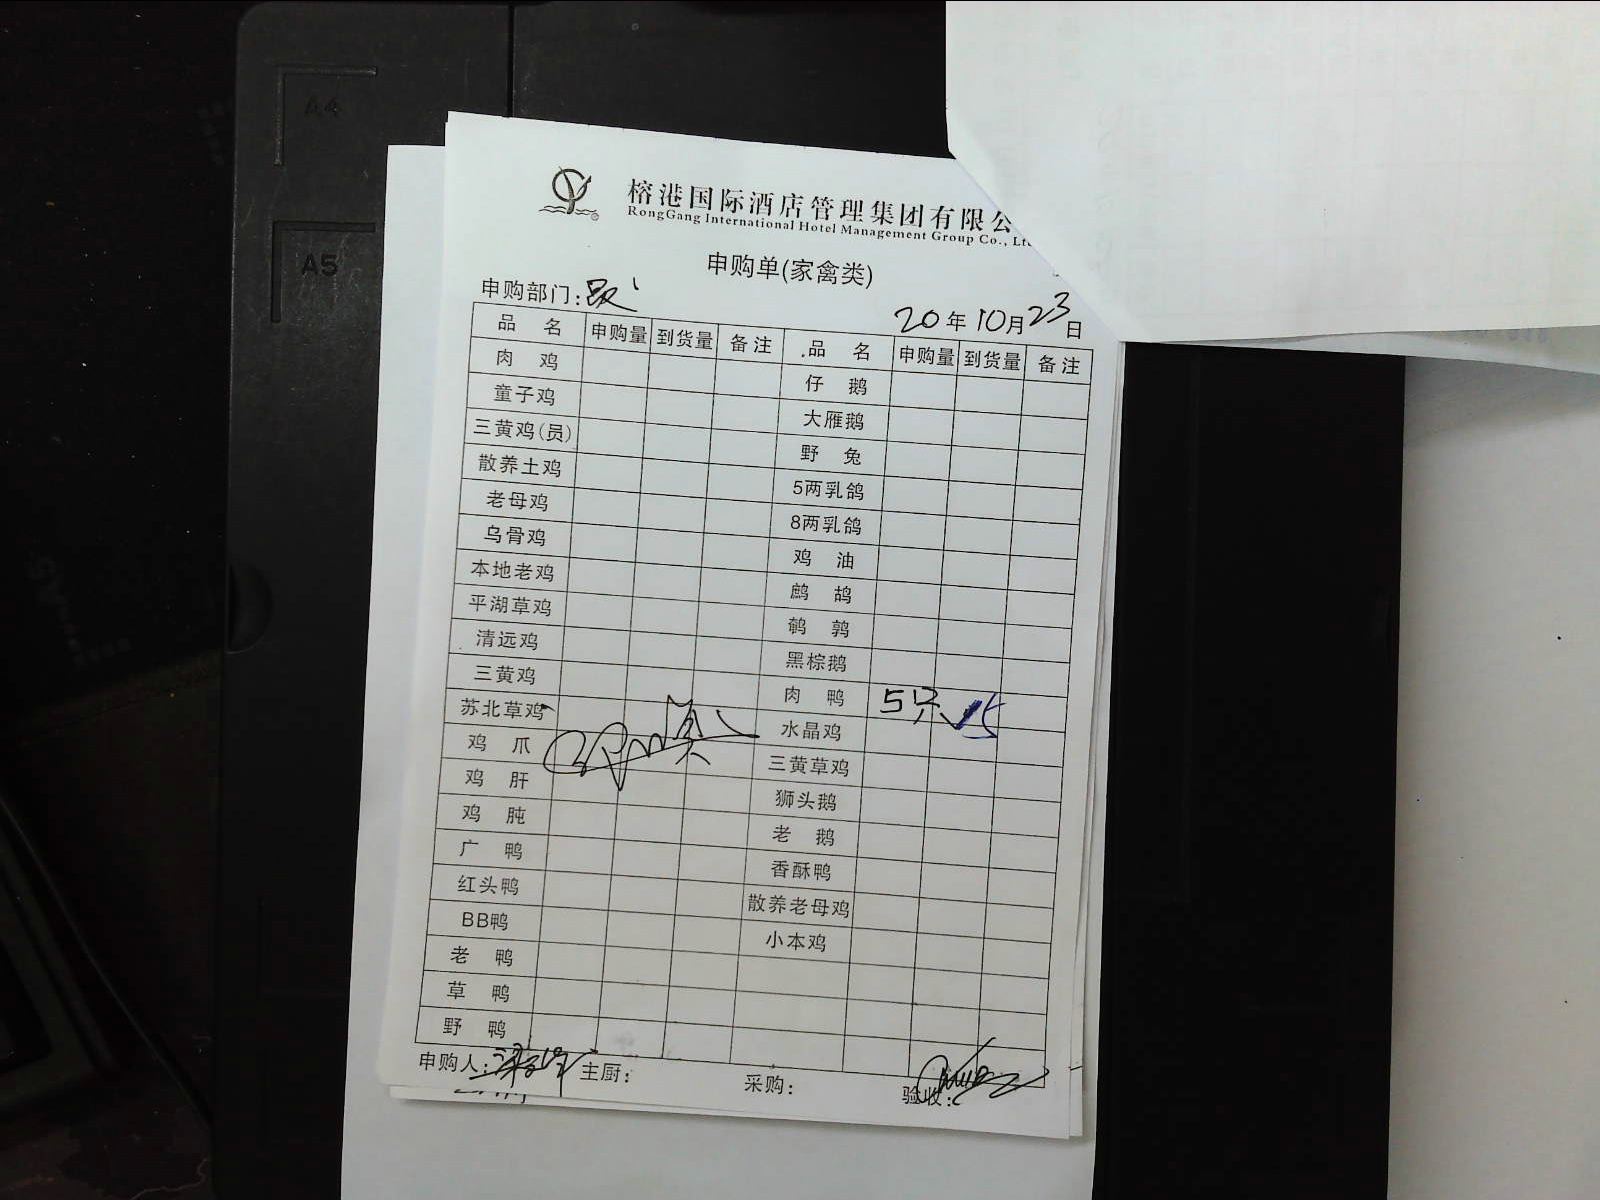 A4
A5
榕港国际酒店管理集团有限公
RongGang International Hotel Management Group Co., Lt
申购单(家禽类)
申购部门:
20年10月23日
品 名 申购量 到货量 备注 品 名 申购量 到货量 备注
肉 鸡 仔 鹅
童子鸡 大雁鹅
三黄鸡(员) 野 兔
散养土鸡 5两乳鸽
老母鸡 8两乳鸽
乌骨鸡 鸡 油
本地老鸡 鹧 鸪
平湖草鸡 鹌 鹑
清远鸡 黑棕鹅
三黄鸡 肉 鸭 5只 √5
苏北草鸡 水晶鸡
鸡 爪 三黄草鸡
鸡 肝 狮头鹅
鸡 肫 老 鹅
广 鸭 香酥鸭
红头鸭 散养老母鸡
BB鸭 小本鸡
老 鸭
草 鸭
野 鸭
申购人: 主厨: 采购: 验收: